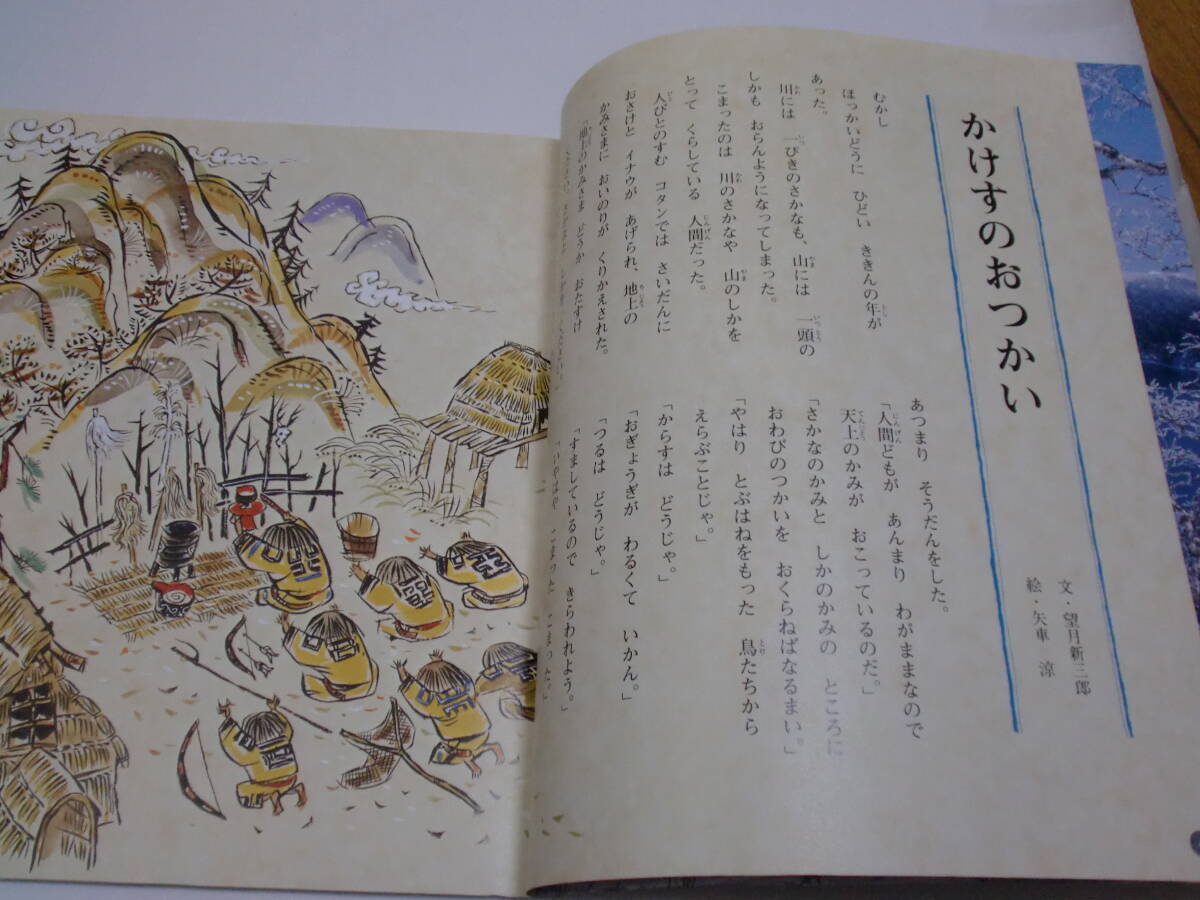 かけすのおつかい
文・望月新三郎
絵・矢車　涼
むかし
ほっかいどうに　ひどい　ききんの年が
あった。
川には　一ぴきのさかなも、山には　一頭の
しかも　おらんようになってしまった。
こまったのは　川のさかなや　山のしかを
とって　くらしている　人間だった。
人びとのすむ　コタンでは　さいだんに
おさけと　イナウが　あげられ、地上の
かみさまに　おいのりが　くりかえされた。
「地上のかみさま　どうか　おたすけ
あつまり　そうだんをした。
「人間どもが　あんまり　わがままなので
天上のかみが　おこっているのだ。」
「さかなのかみと　しかのかみの　ところに
おわびのつかいを　おくらねばなるまい。」
「やはり　とぶはねをもった　鳥たちから
えらぶことじゃ。」
「からすは　どうじゃ。」
「おぎょうぎが　わるくて　いかん。」
「つるは　どうじゃ。」
「すましているので　きらわれよう。」
「いやはや　こまった　こまった。」